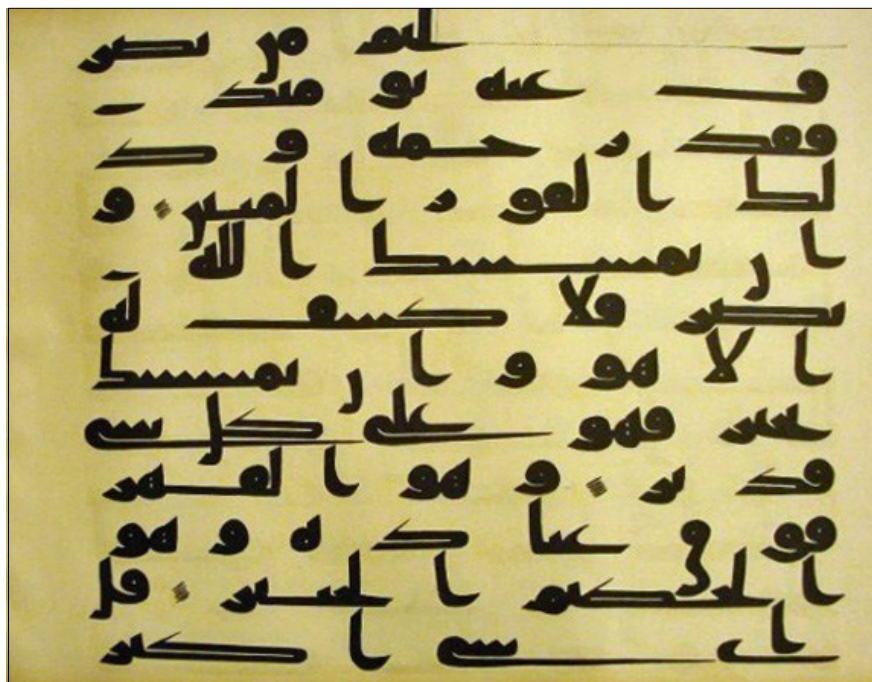 من يصر
ف عنه يومئذ
فقد رحمه وذ
لك الفوز المبين و
ان يمسسك الله
بضر فلا كشف له
الا هو وان يمسسك
بخير فهو على كل شي
قدير وهو القهر
فوق عباده وهو
الحكيم الخبير قل
اي شي اكبر